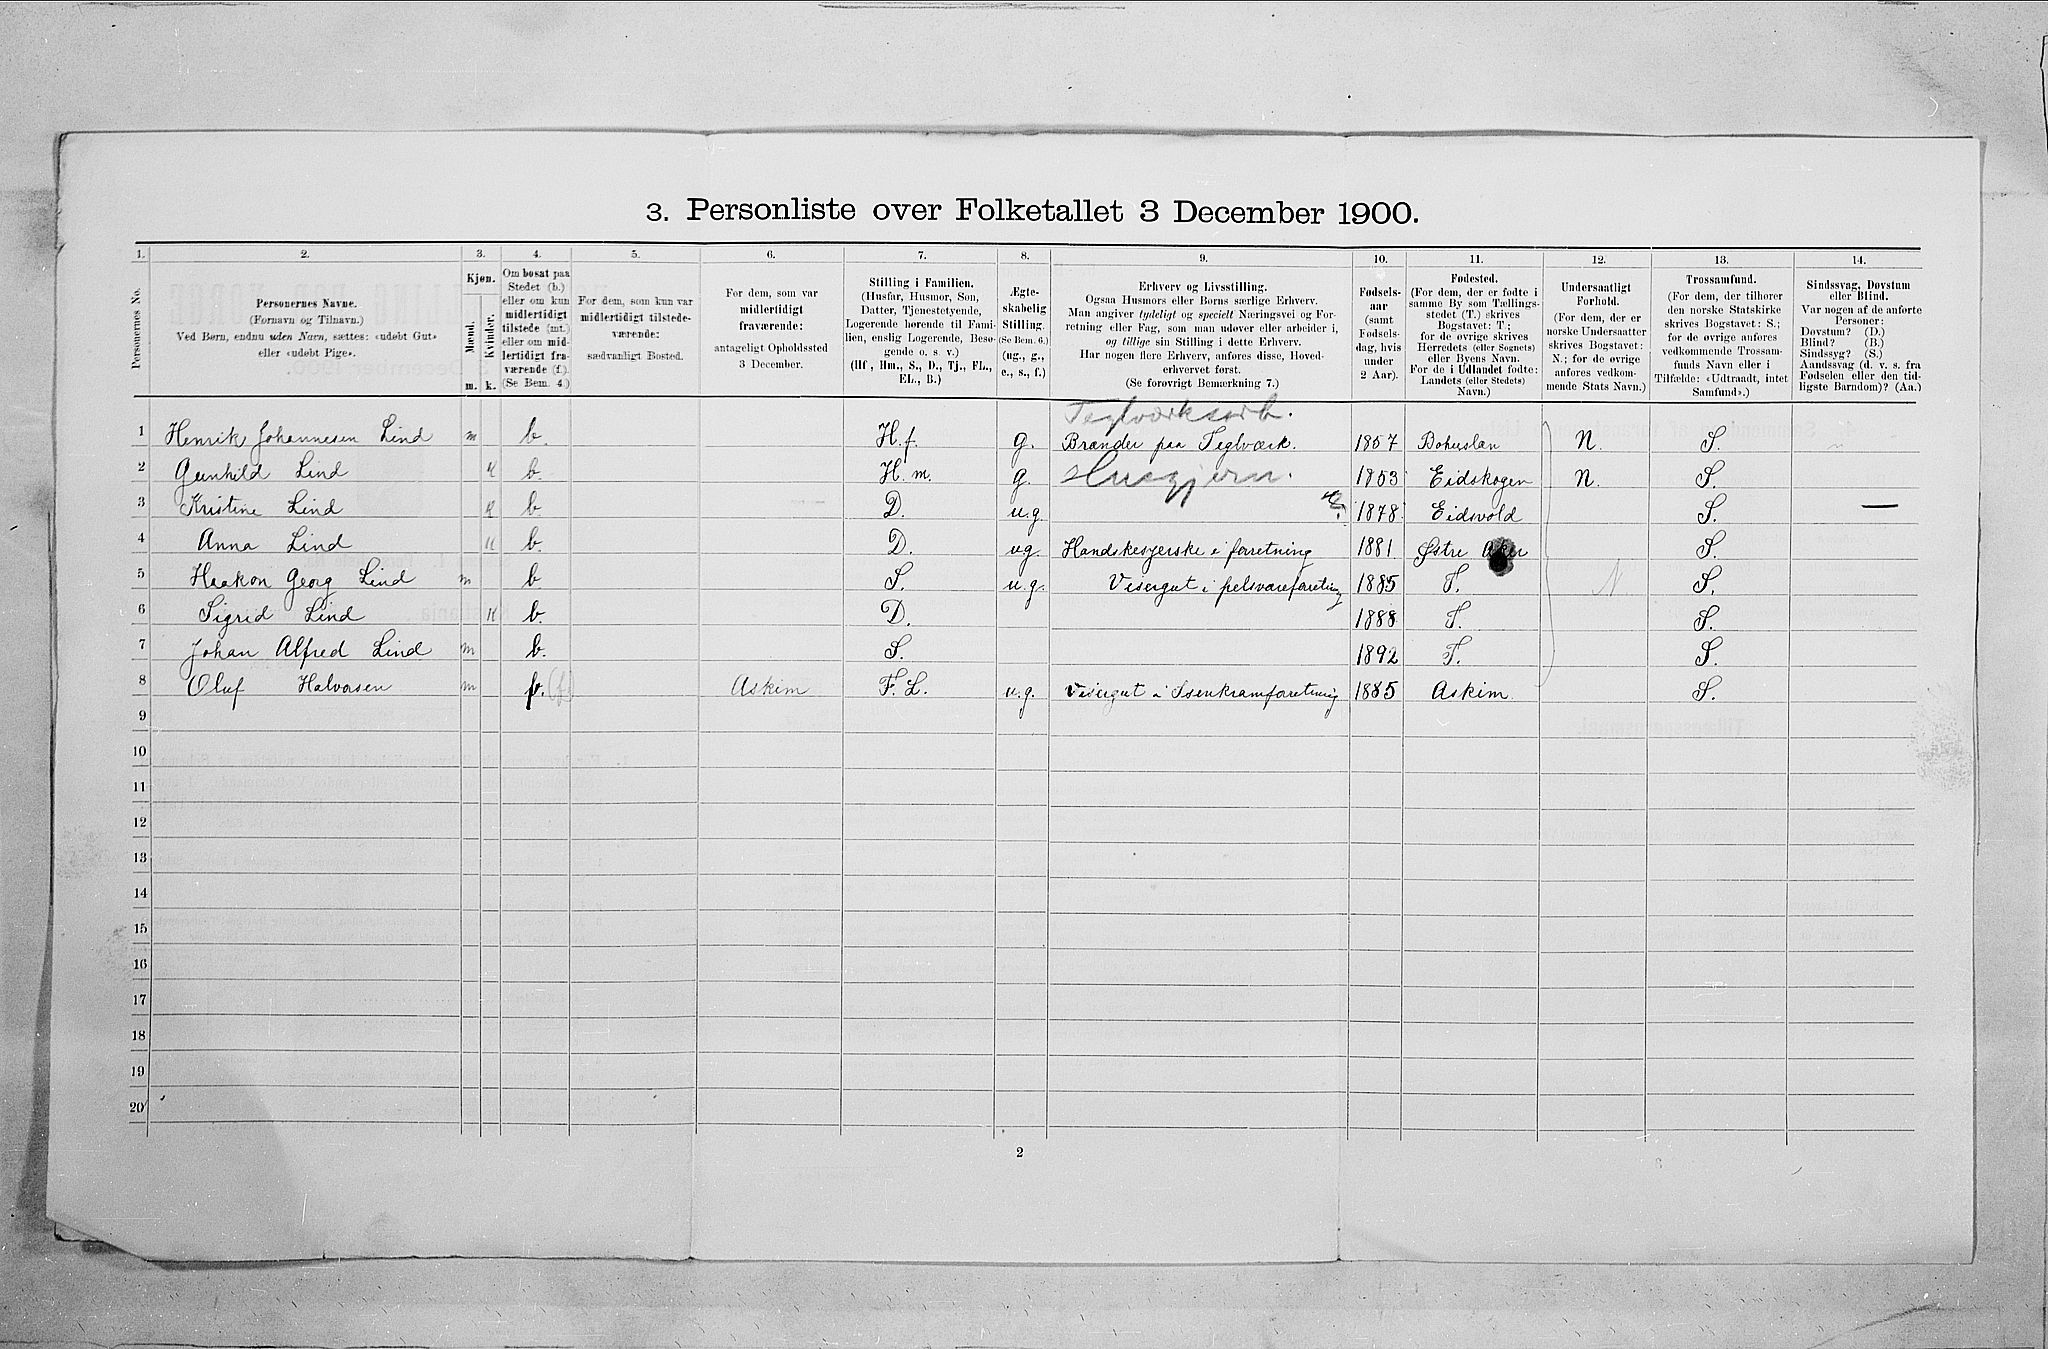 3. Personliste over Folketallet 3 December 1900.
1. 2. 3. 4. 5. 6. 7. 8. 9. 10. 11. 12. 13. 14.
Personernes No.
Personernes Navne.
(Fornavn og Tilnavn.)
Ved Børn, endnu uden Navn, sættes: «udøbt Gut»
eller «udøbt Pige».
Kjøn.
Mænd.
Kvinder.
m. k.
Om bosat paa
Stedet (b.)
eller om kun
midlertidigt
tilstede (mt.)
eller om mid-
lertidigt fra-
værende (f.).
(Se Bem. 4.)
For dem, som kun var
midlertidigt tilstede-
værende:
sædvanligt Bosted.
For dem, som var
midlertidigt
fraværende:
antageligt Opholdssted
3 December.
Stilling i Familien.
(Husfar, Husmor, Søn,
Datter, Tjenestetyende,
Logerende hørende til Fami-
lien, enslig Logerende, Besø-
gende o. s. v.)
(Hf., Hm., S., D., Tj., FL.,
EL., B.)
Ægte-
skabelig
Stilling.
(Se Bem. 6.)
(ug., g.,
e., s., f.)
Erhverv og Livsstilling.
Ogsaa Husmors eller Børns særlige Erhverv.
Man angiver tydeligt og specielt Næringsvei og For-
retning eller Fag, som man udøver eller arbeider i,
og tillige sin Stilling i dette Erhverv.
Har nogen flere Erhverv, anføres disse, Hoved-
erhvervet først.
(Se forøvrigt Bemerkning 7.)
Fødsels-
aar
(samt
Fødsels-
dag, hvis
under
2 Aar).
Fødested.
(For dem, der er fødte i
samme By som Tællings-
stedet (T.) skrives
Bogstavet: T.;
for de øvrige skrives
Herredets (eller Sognets)
eller Byens Navn.
For de i Udlandet fødte:
Landets (eller Stedets)
Navn.)
Undersaatligt
Forhold.
(For dem, der er
norske Undersaatter
skrives Bogstavet:
N.; for de øvrige
anføres vedkom-
mende Stats Navn.)
Trossamfund.
(For dem, der tilhører
den norske Statskirke
skrives Bogstavet: S.;
for de øvrige anføres
vedkommende Trossam-
funds Navn eller i
Tilfælde: «Udtraadt, intet
Samfund».)
Sindssvag, Døvstum
eller Blind.
Var nogen af de anførte
Personer:
Døvstum? (D.)
Blind? (B.)
Sindssyg? (S.)
Aandssvag (d. v. s. fra
Fødselen eller den tid-
ligste Barndom)? (Aa.)
Teglværksarb.
1 Henrik Johannesen Lind m b. H.f. g. Brænder paa Teglværk. 1857 Bohuslän N. S.
2 Gunhild Lind K b. H.m. g. Husgjern. 1853 Eidskogen N. S.
3 Kristine Lind K b. D. u.g. 1878 Eidsvold S. —
4 Anna Lind K b. D. ug. Handskesyerske i forretning 1881 Østre Aker S.
5 Haakon Georg Lind m b S. u.g. Visergut i pelsvareforretning 1885 T. N S.
6 Sigrid Lind K b. D. 1888 T. S.
7 Johan Alfred Lind m b. S. 1892 T. S.
8 Oluf Halvorsen m b. (f) Askim F.L. u.g. Visergut i Isenkramforretning 1885 Askim S.
9
10
11
12
13
14
15
16
17
18
19
20
2